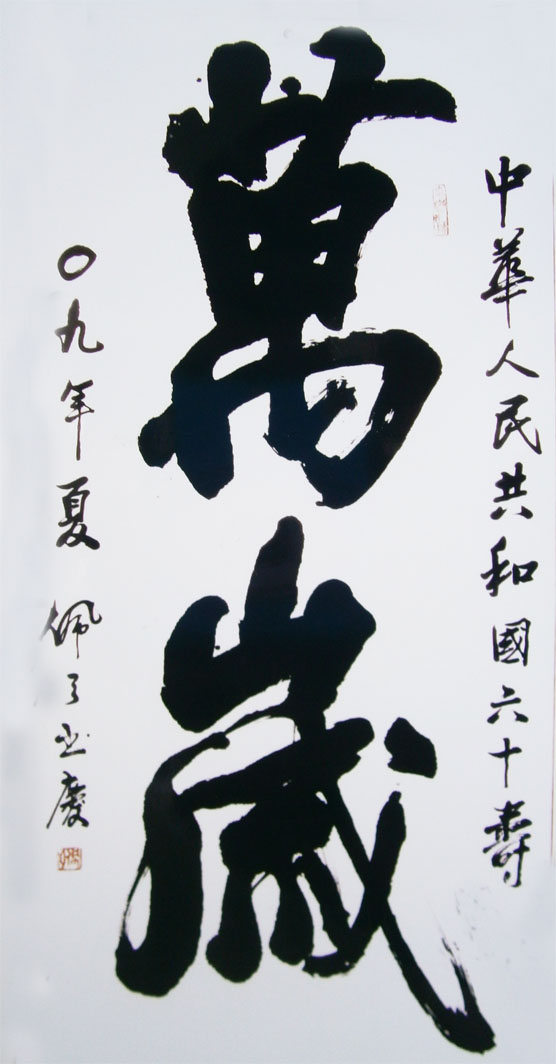 中華人民共和國六十壽
萬歲
〇九年夏 佩书慶